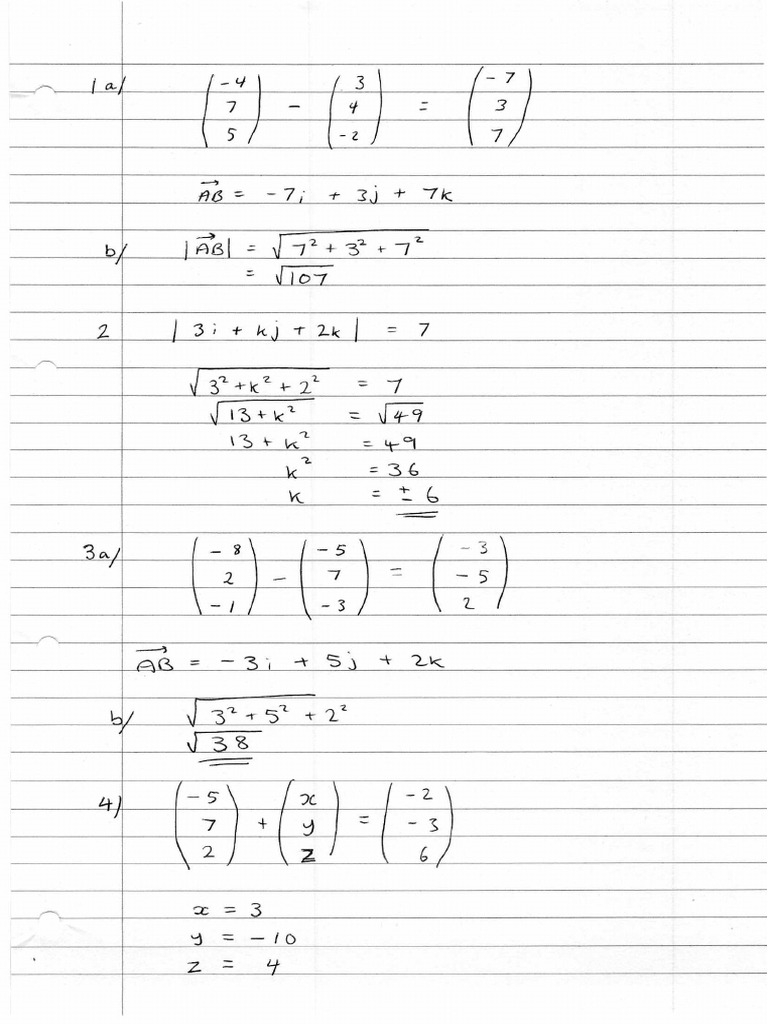 1a/ (-4 7 5) - (3 4 -2) = (-7 3 7)
→AB = -7i + 3j + 7k
b/ |→AB| = √(7² + 3² + 7²)
= √107
2 | 3i + kj + 2k | = 7
√(3² + k² + 2²) = 7
√(13 + k²) = √49
13 + k² = 49
k² = 36
k = ± 6
3a/ (-8 2 -1) - (-5 7 -3) = (-3 -5 2)
→AB = -3i + 5j + 2k
b/ √(3² + 5² + 2²)
√38
4) (-5 7 2) + (x y z) = (-2 -3 6)
x = 3
y = -10
z = 4